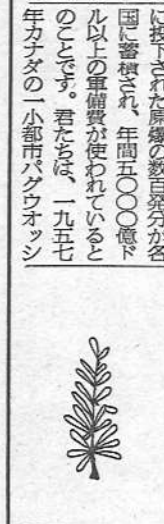 に投下された原爆の数百発分が各
国に蓄積され、年間五〇〇〇億ド
ル以上の軍備費が使われていると
のことです。君たちは、一九五七
年カナダの一小都市パグウオッシ